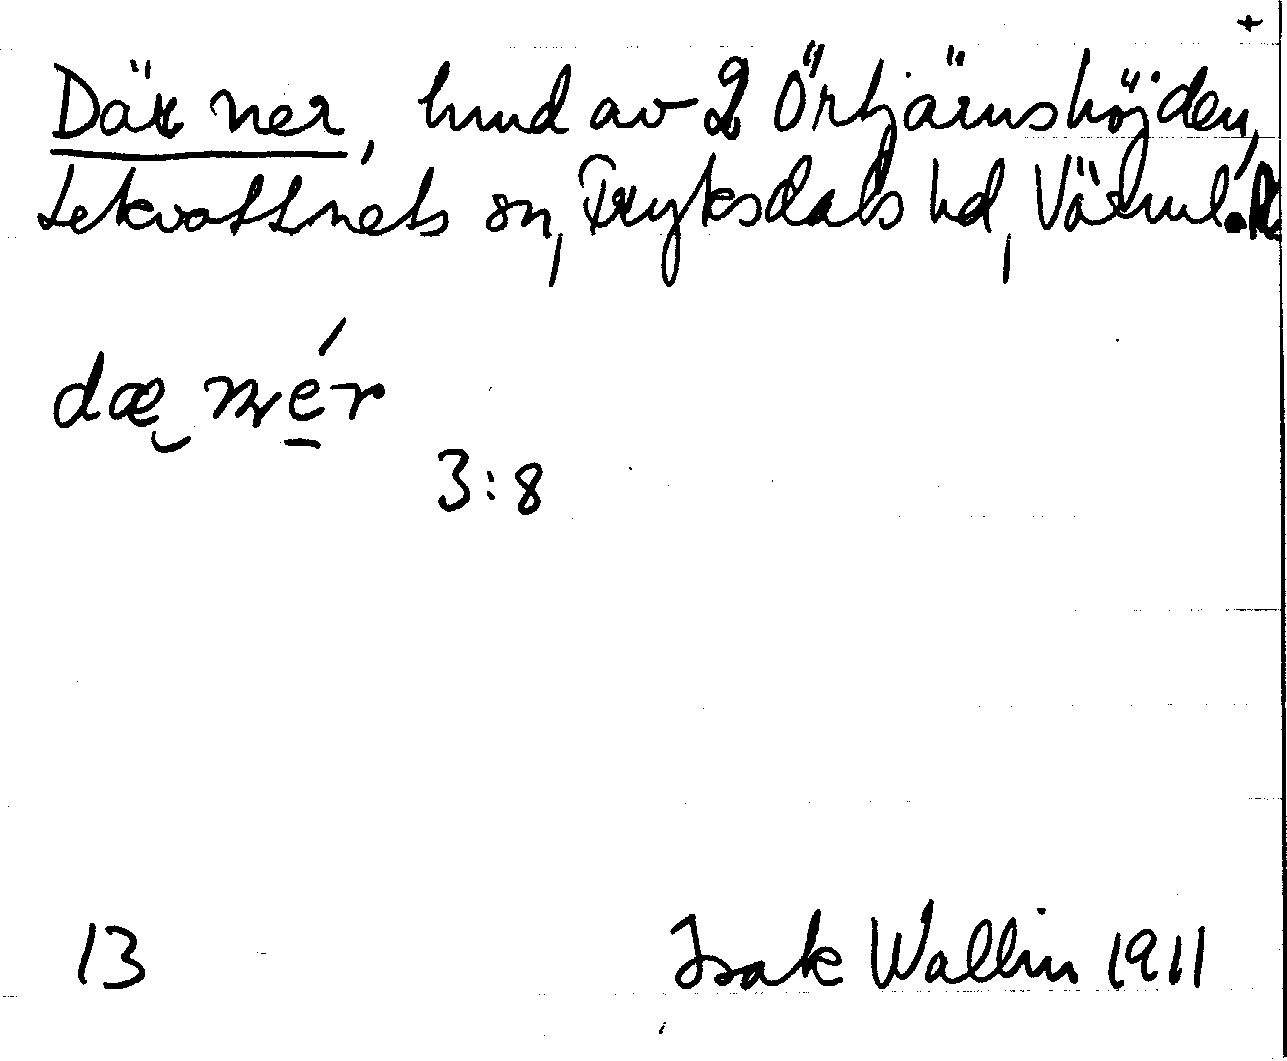 +
Där ner, hmd av 2 Örtjärnshöjden,
Lekvattnets sn, Fryksdals hd, Värml.
dæ nér
3:8
13 Isak Wallin 1911